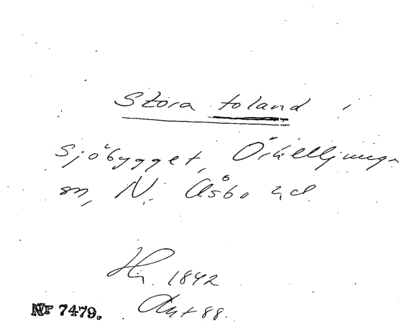 Stora toland i
Sjöbygget, Örkelljunga
sn, N. Åsbo hd
Hy. 1842
Akt 88.
Nr 7479.